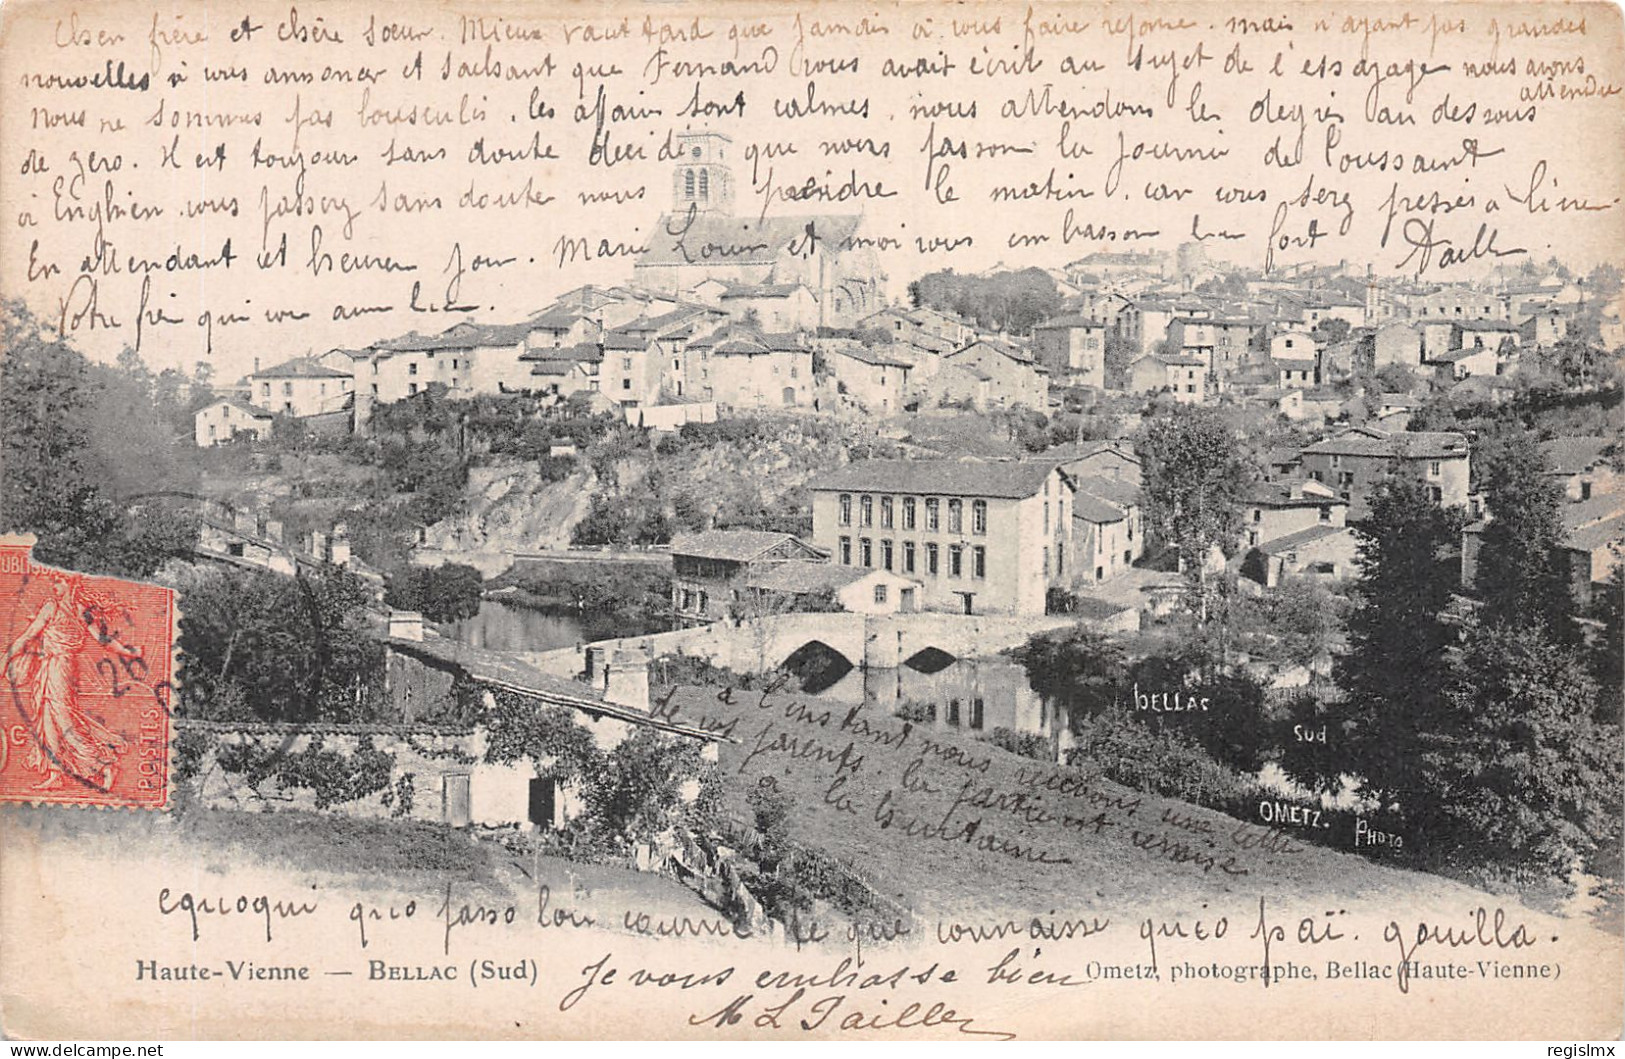 Cher frère et Chère Soeur. Mieux vaut tard que jamais à vous faire reponse. mais n'ayant pas grandes
nouvelles à vous annoncer et sachant que Fernand vous avait écrit au sujet de l'essayage nous avons
attendu
nous ne sommes pas bousculés. les affaires sont calmes. nous attendons les degrés au dessous
de zero. Il est toujours sans doute décidé que nous passons la journée de Toussaint
à Enghien. vous passerez sans doute nous prendre le matin. car vous serez pressés à
En attendant cet heureux jour. Marie Louise et moi vous embrassons bien fort
Votre frère qui vous aime bien.
à l'instant nous recevons une lettre
de vos parents. la partie est remise
à la
equoqui quo passo lou que connaisse pai. gouilla.
Je vous embrasse bien
M L
BELLAC
SUD
OMETZ.
PHOTO
PUBLIQUE
POSTES
Haute-Vienne — BELLAC (Sud)
Ometz, photographe, Bellac (Haute-Vienne)
regislmx